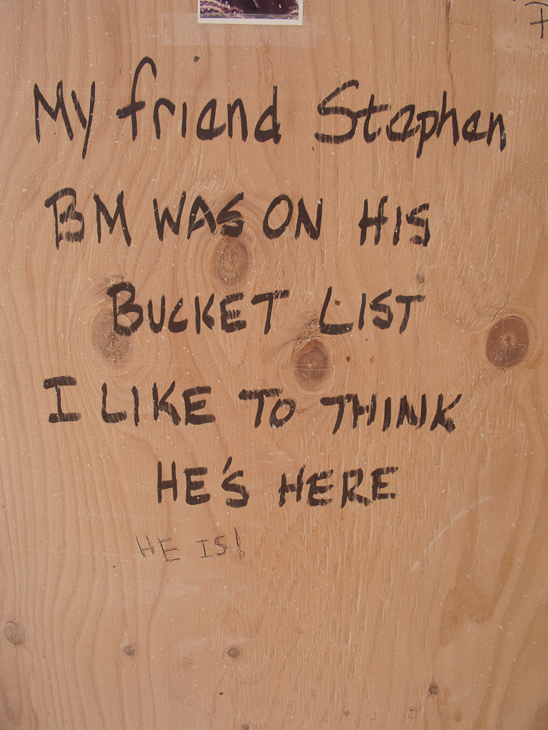 My friend Stephen
BM WAS ON HIS
BUCKET LIST
I LIKE TO THINK
HE'S HERE
HE IS!